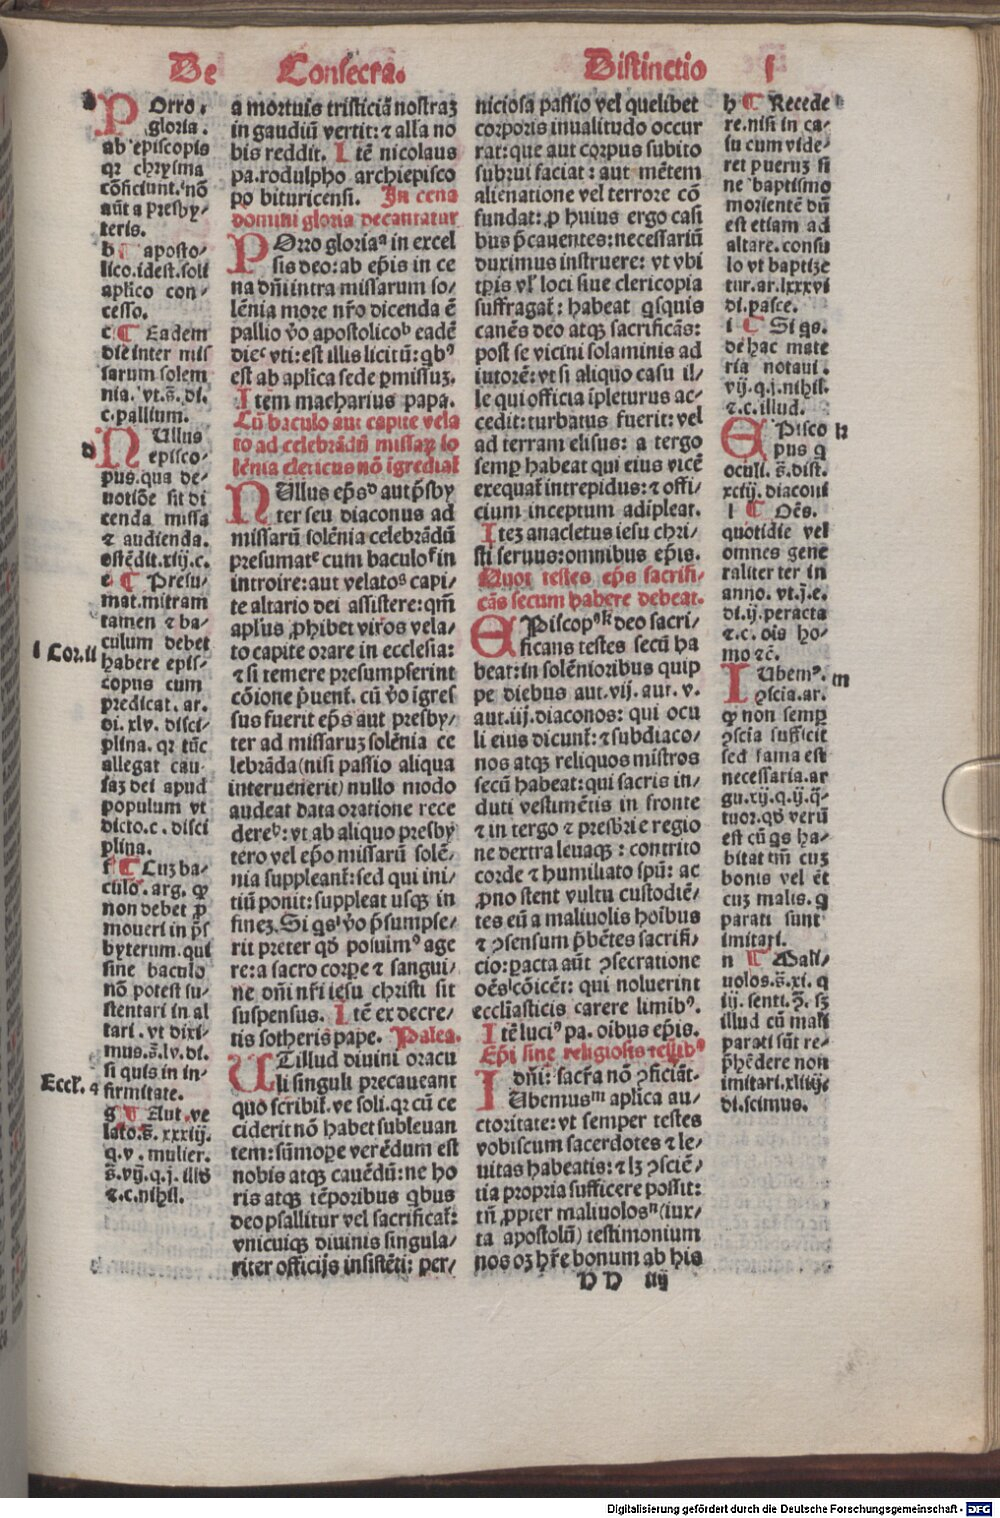 De Consecra. Distinctio I
a
POrro.
gloria.
ab episcopis
qr chrysma
cōficiunt. nō
aūt a presby⸗
teris.
b aposto⸗
lico. idest. soli
aplico con⸗
cesso.
c ¶ Eadem
die inter mis
sarum solem
nia. vt. s̄. di.
c. pallium.
d
NUllus
episco⸗
pus. qua de⸗
uotiōe sit di
cenda missa
⁊ audienda.
ostēdit. xiij. c.
e ¶ Presu⸗
mat. mitram
tamen ⁊ ba⸗
culum debet
i Cor. ii
habere epis⸗
copus cum
predicat. ar.
di. xlv. disci⸗
plina. qr tūc
allegat cau⸗
saz dei apud
populum vt
dicto. c. disci
plina.
f ¶ Cuz ba⸗
culo. arg. ꝙ
non debet ꝓ
moueri in p̄s
byterum. qui
sine baculo
nō potest su⸗
stentari in al
tari. vt dixi⸗
mus. s̄. lv. di.
si quis in in⸗
Eccl. 4
firmitate.
g ¶ Aut ve
lato. s̄. xxxiij.
q. v. mulier.
s̄. vij. q. j. illd
⁊. c. nihil.
a mortuis tristiciā nostraz
in gaudiū vertit: ⁊ alla no
bis reddit. Itē nicolaus
pa. rodulpho archiepisco
po bituricensi. In cena
domini gloria decantatur
POrro gloriaᵃ in excel
sis deo: ab ep̄is in ce
na dn̄i intra missarum so⸗
lēnia more nr̄o dicenda ē
pallio v̄o apostolicoᵇ eadē
dieᶜ vti: est illis licitū: qbꝰ
est ab aplica sede ꝑmissuz.
Item macharius papa.
Cū baculo aut capite vela
to ad celebrādū missaꝝ so
lēnia clericus nō īgrediat
NUllus ep̄sᵈ aut p̄sby
ter seu diaconus ad
missarū solēnia celebrādū
presumatᵉ cum baculoᶠ in
introire: aut velatoᵍ capi⸗
te altario dei assistere: qm̄
aplus ꝓhibet viros vela⸗
to capite orare in ecclesia:
⁊ si temere presumpserint
cōione p̄uent. cū v̄o īgres
sus fuerit ep̄s aut presby⸗
ter ad missaruz solēnia ce
lebrāda (nisi passio aliqua
interuenerit) nullo modo
audeat data oratione rece
dereʰ: vt ab aliquo presby
tero vel ep̄o missarū solē⸗
nia suppleant: sed qui ini⸗
tiū ponit: suppleat usqꝫ in
finez. Si qsⁱ v̄o p̄sumpse⸗
rit preter qd̄ posuimꝰ age
re: a sacro corpe ⁊ sangui⸗
ne dn̄i nr̄i iesu christi sit
suspensus. Itē ex decre⸗
tis sotheris pape. Palea.
UT illud diuini oracu
li singuli precaueant
quo scribit. ve soli. qr cū ce
ciderit nō habet subleuan
tem: sūmope verēdum est
nobis atqꝫ cauēdū: ne ho
ris atqꝫ tēporibus qbus
deo psallitur vel sacrificat:
vnicuiqꝫ diuinis singula⸗
riter officijs insistēti: per⸗
niciosa passio vel quelibet
corporis inualitudo occur
rat: que aut corpus subito
subrui faciat: aut mētem
alienatione vel terrore cō
fundat: ꝓ huius ergo casi
bus p̄cauentes: necessariū
duximus instruere: vt vbi
tp̄is vl̄ loci siue clericopia
suffragat: habeat qsquis
canēs deo atqꝫ sacrificās:
post se vicini solaminis ad
iutorē: vt si aliquo casu il⸗
le qui officia īpleturus ac⸗
cedit: turbatus fuerit: vel
ad terram elisus: a tergo
semꝑ habeat qui eius vicē
exequat intrepidus: ⁊ offi⸗
cium inceptum adipleat.
Itez anacletus iesu chri⸗
sti seruus: omnibus ep̄is.
Quot testes ep̄s sacrifi⸗
cās secum habere debeat.
EPiscopꝰᵏ deo sacri⸗
ficans testes secū ha
beat: in solēnioribus quip
pe diebus aut. vij. aut. v.
aut. iij. diaconos: qui ocu
li eius dicunt: ⁊ subdiaco⸗
nos atqꝫ reliquos mistros
secū habeat: qui sacris in⸗
duti vestimētis in fronte
⁊ in tergo ⁊ presbr̄i e regio
ne dextra leuaqꝫ: contrito
corde ⁊ humiliato spū: ac
ꝓno stent vultu custodiē⸗
tes eū a maliuolis hoībus
⁊ ꝯsensum p̄bētes sacrifi⸗
cio: ꝑacta aūt ꝯsecratione
oēsˡ cōicēt: qui noluerint
ecclīasticis carere limibꝰ.
Itē luciꝰ pa. oībus ep̄is.
Ep̄i sine religiosis testibꝰ
dn̄i: sacr̄a nō ꝯficiāt.
IUbemusᵐ aplica au⸗
ctoritate: vt semper testes
vobiscum sacerdotes ⁊ le⸗
uitas habeatis: ⁊ lꝫ ꝯsciē⸗
tia propria sufficere possit:
tn̄ ꝓpter maliuolosⁿ (iux⸗
ta apostolū) testimonium
nos oꝫ hr̄e bonum ab his
HH iiij
h ¶ Recede
re. nisi in ca⸗
su cum vide⸗
ret pueruz si
ne baptismo
morientē dū
est etiam ad
altare. consu
lo vt baptize
tur. ar. lxxxvi
di. pasce.
i ¶ Si qs.
de hac mate
ria notaui.
vij. q. j. nihil.
⁊. c. illud.
k
EPisco
pus q
oculi. s̄. dist.
xciij. diaconi
l ¶ Oēs.
quotidie vel
omnes gene
raliter ter in
anno. vt. j. e.
di. ij. peracta
⁊. c. ois ho⸗
mo ⁊c̄.
m
IUbemꝰ.
ꝯscia. ar.
ꝙ non semꝑ
ꝯscia sufficit
sed fama est
necessaria. ar
gu. xij. q. ij. q̄⸗
tuor. qd̄ verū
est cū qs ha⸗
bitat tm̄ cuz
bonis vel et̄
cuz malis. q
parati sunt
imitari.
n ¶ Mali⸗
uolos. s̄. xi. q
iij. senti. ꝫ. sꝫ
illud cū mali
parati sūt re⸗
p̄hēdere non
imitari. xliiij.
di. scimus.
Digitalisierung gefördert durch die Deutsche Forschungsgemeinschaft - DFG